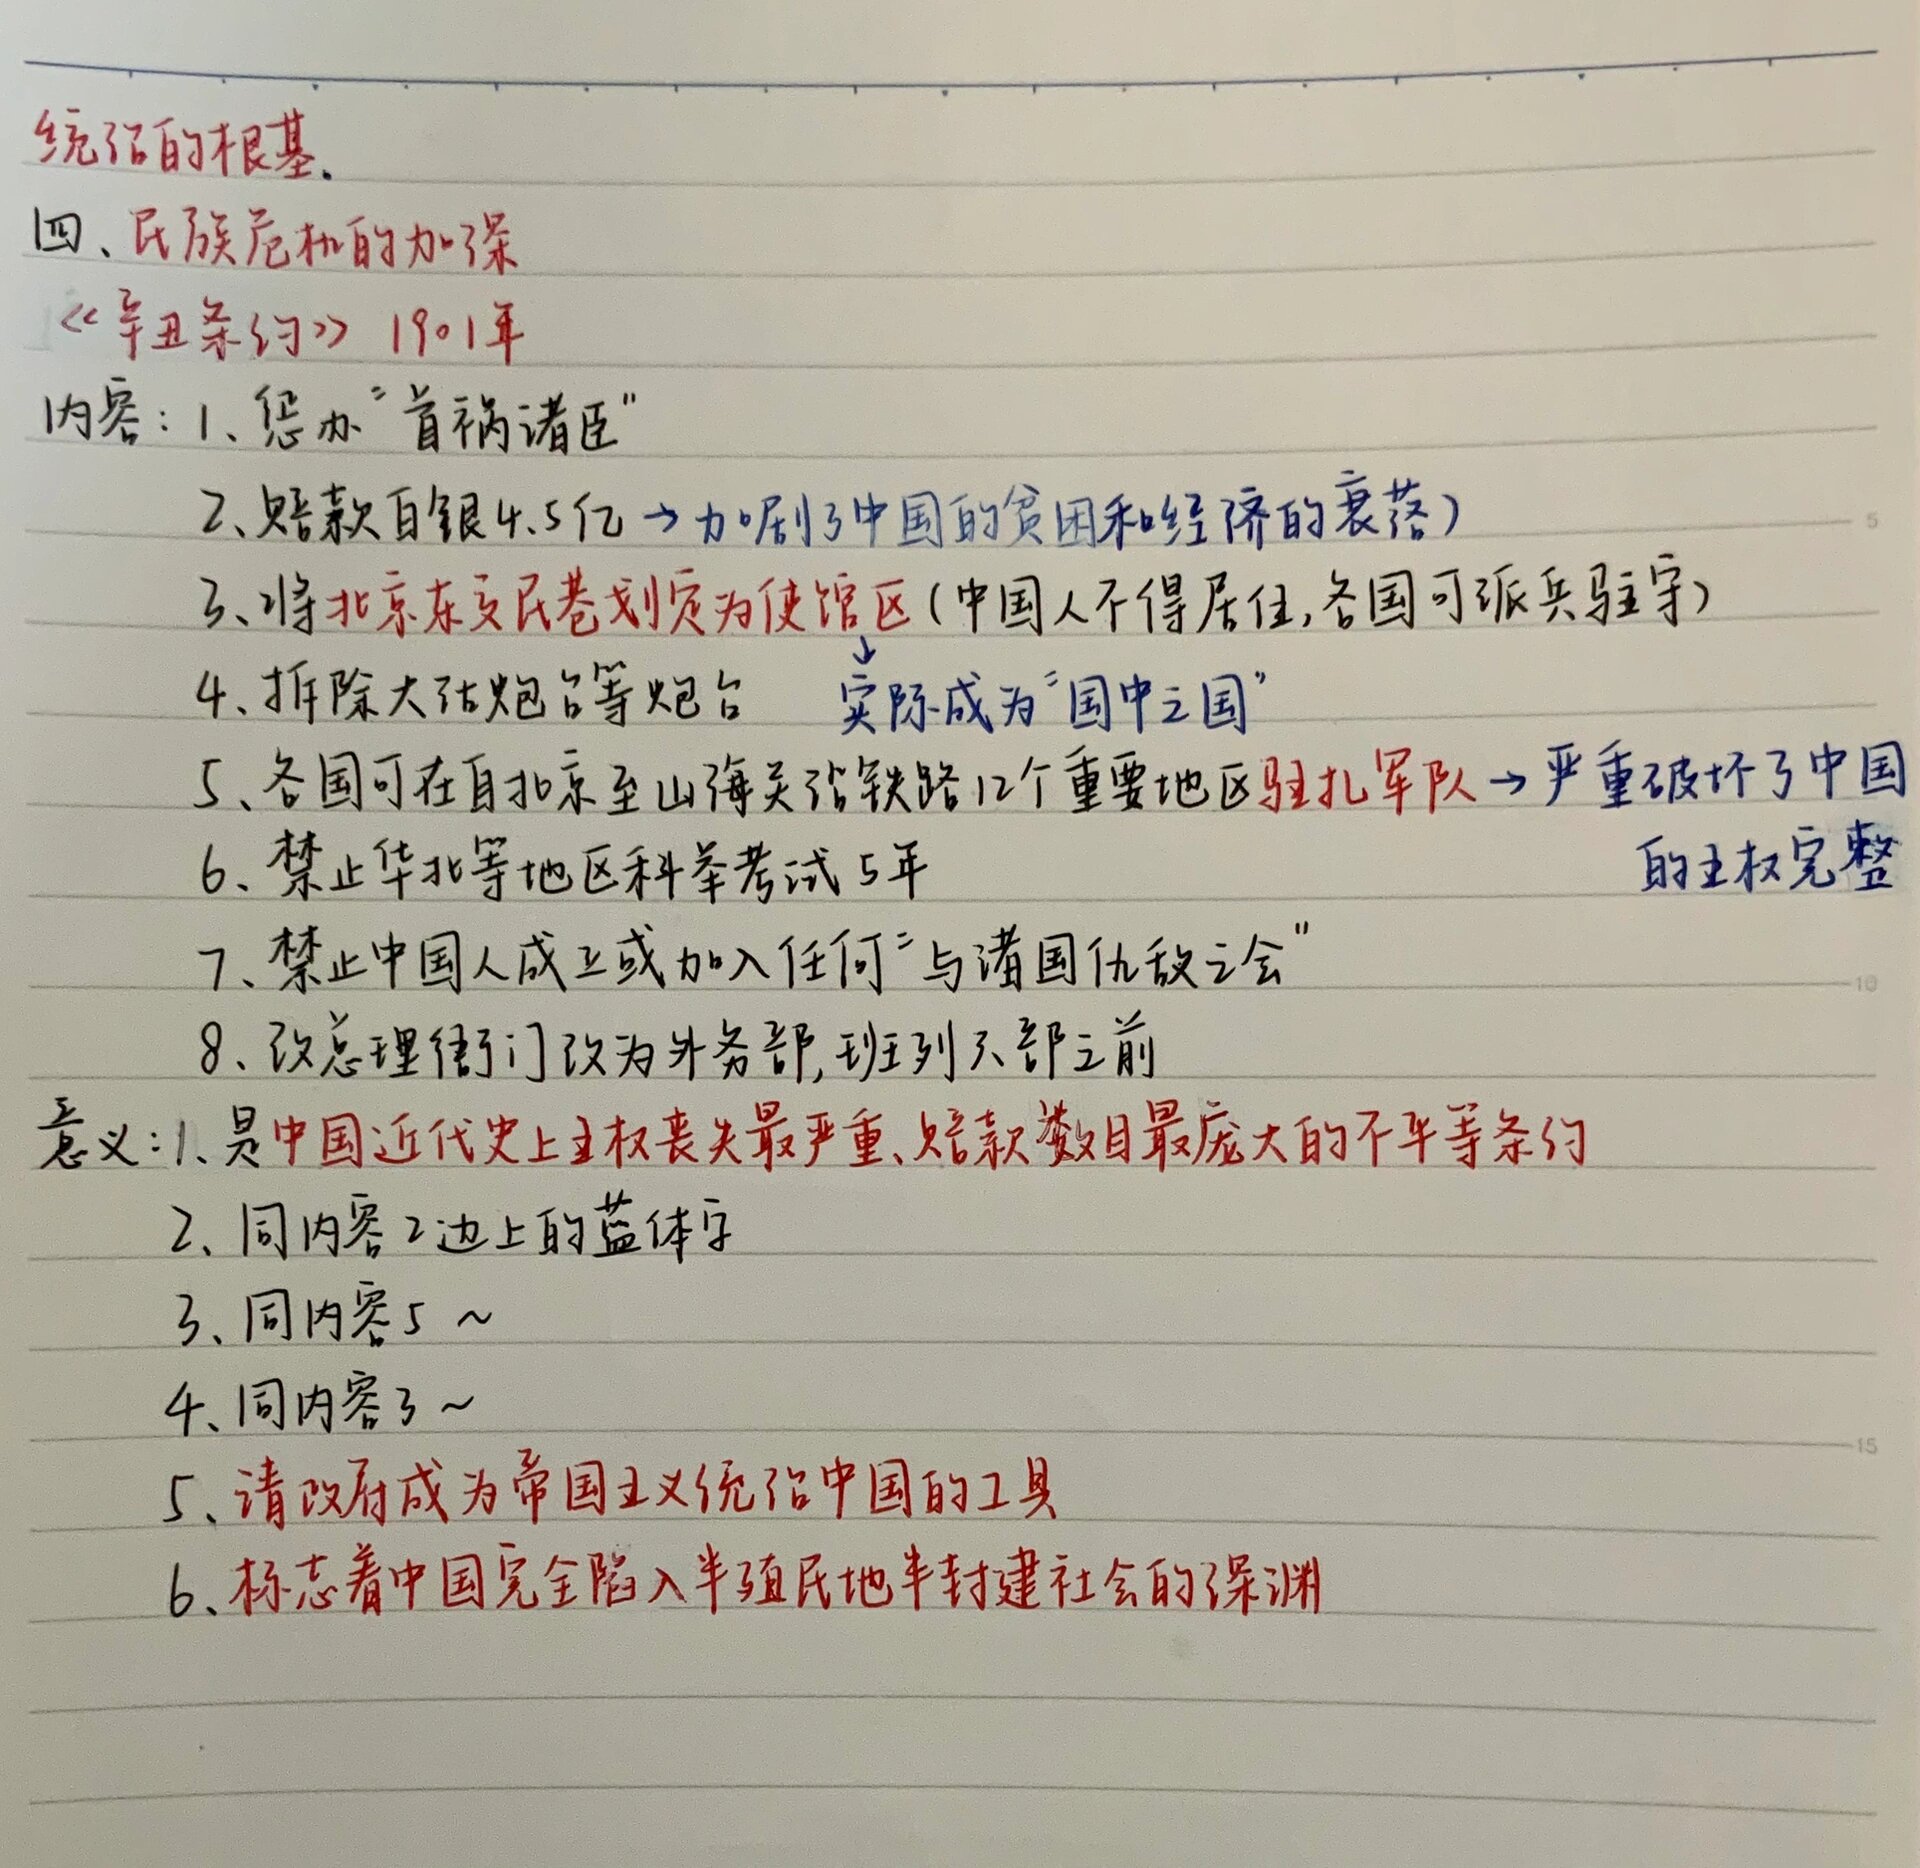 统治的根基.
四、民族危机的加深
《辛丑条约》 1901年
内容：1、惩办“首祸诸臣”
2、赔款白银4.5亿→加剧了中国的贫困和经济的衰落)
3、将北京东交民巷划定为使馆区(中国人不得居住,各国可派兵驻守)
4、拆除大沽炮台等炮台 ↓实际成为“国中之国”
5、各国可在自北京至山海关沿铁路12个重要地区驻扎军队→严重破坏了中国
的主权完整
6、禁止华北等地区科举考试5年
7、禁止中国人成立或加入任何“与诸国仇敌之会”
8、改总理衙门改为外务部,班列六部之前
意义：1、是中国近代史上主权丧失最严重、赔款数目最庞大的不平等条约
2、同内容2边上的蓝体字
3、同内容5~
4、同内容3~
5、清政府成为帝国主义统治中国的工具
6、标志着中国完全陷入半殖民地半封建社会的深渊
5
10
15